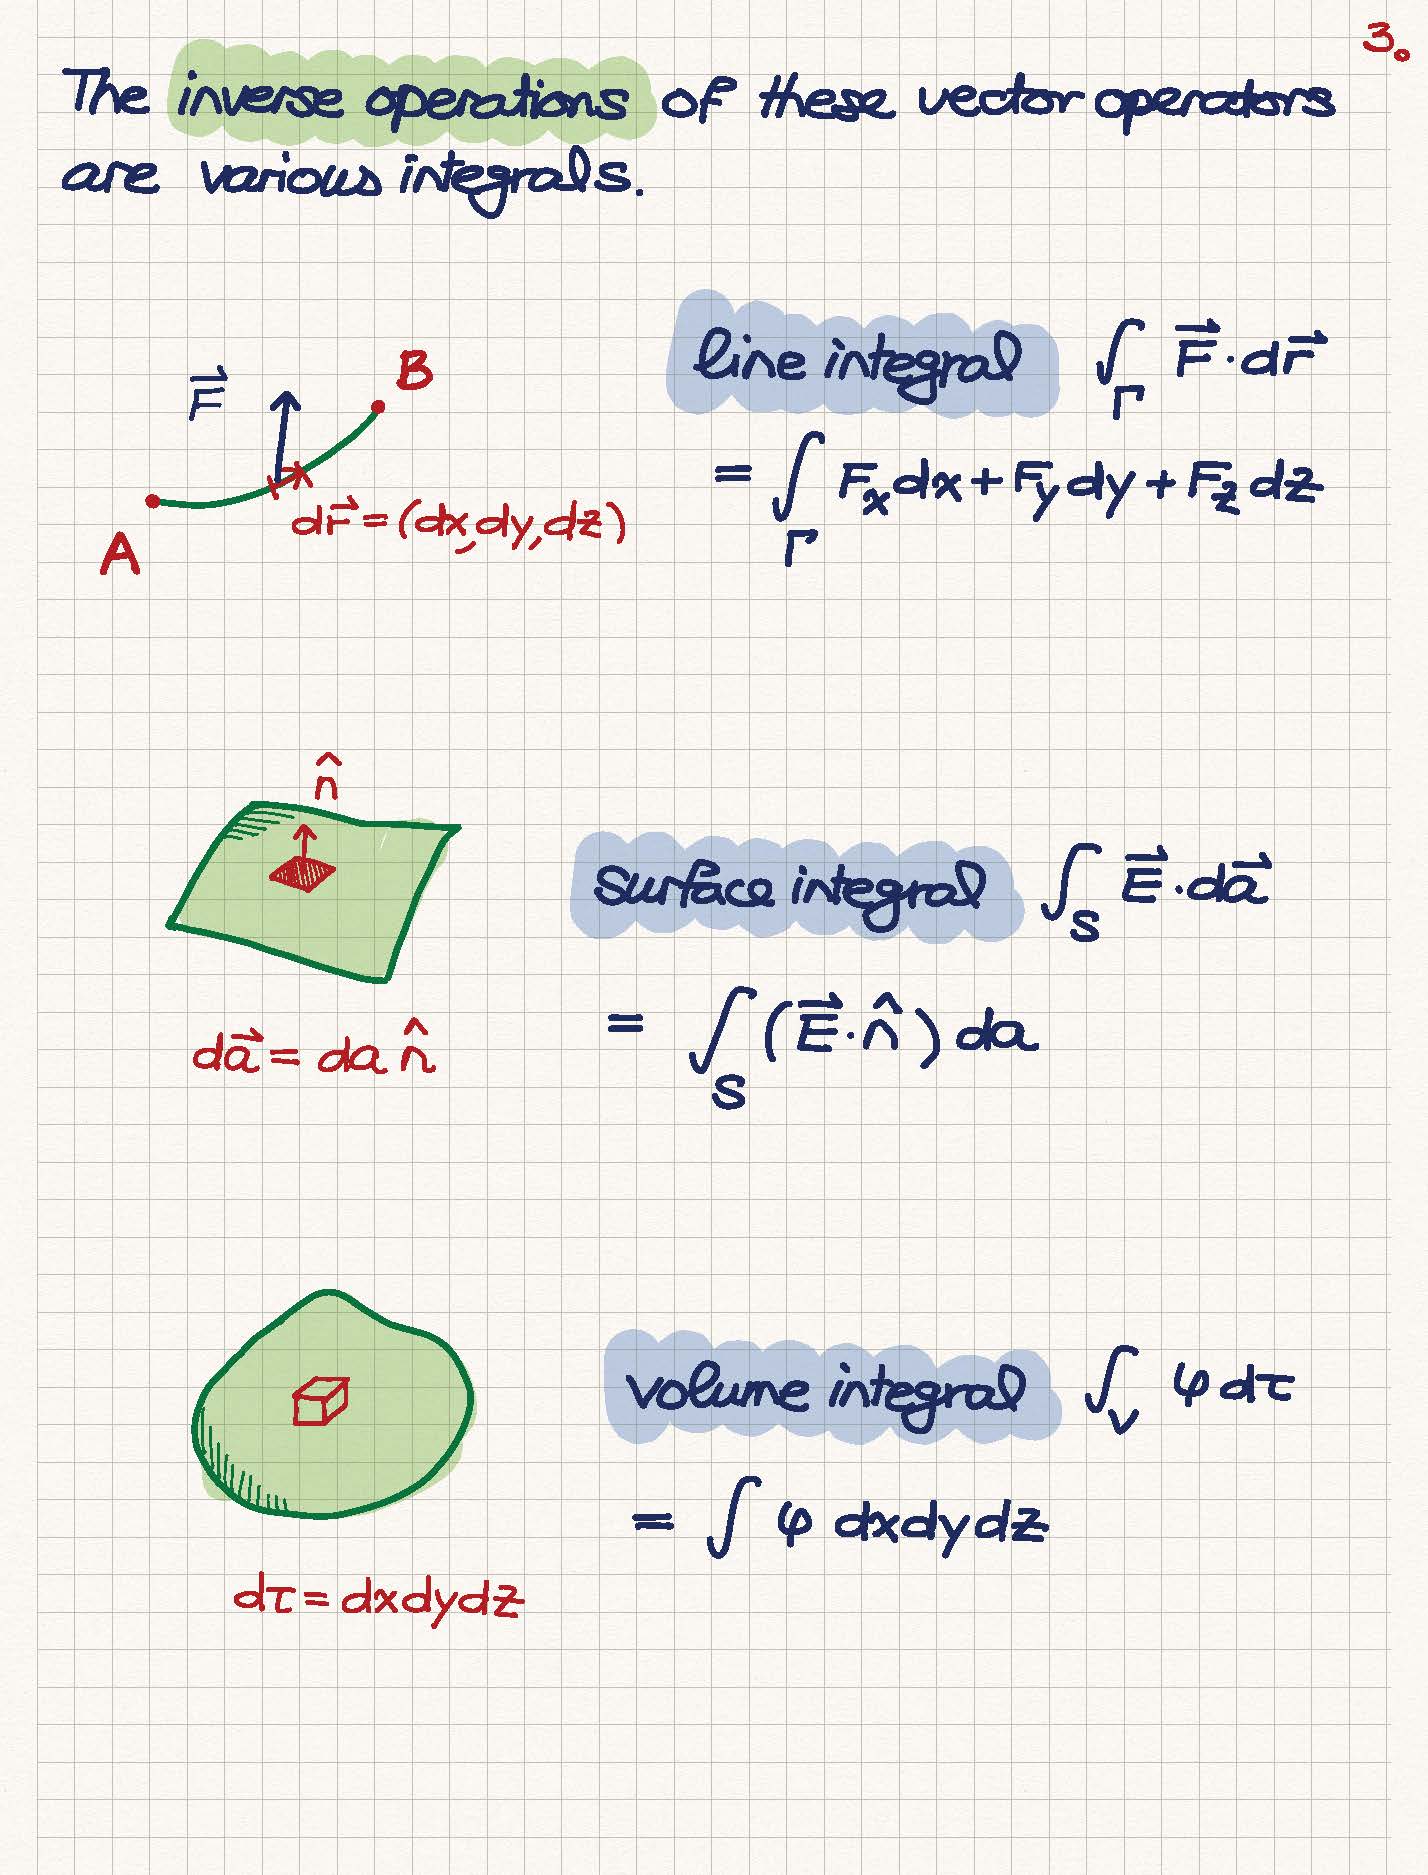 3.
The inverse operations of these vector operators
are various integrals.
F⃗
B
A
dr⃗ = (dx, dy, dz)
line integral ∫_Γ F⃗ · dr⃗
= ∫_Γ F_x dx + F_y dy + F_z dz
n̂
da⃗ = da n̂
surface integral ∫_S E⃗ · da⃗
= ∫_S (E⃗ · n̂) da
dτ = dxdydz
volume integral ∫_V φ dτ
= ∫ φ dxdydz